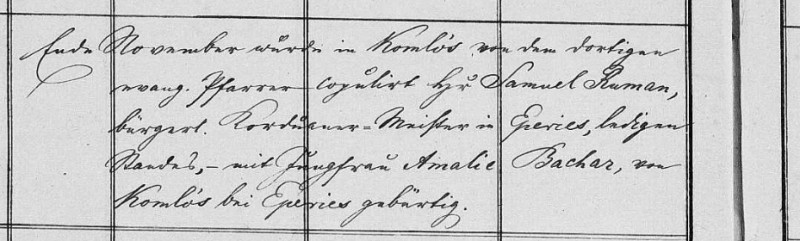 Ende November wurde in Komlós von dem dortigen
evang. Pfarrer copulirt Hr Samuel Ruman,
bürgerl. Korduaner-Meister in Eperies, ledigen
Standes, – mit Jungfrau Amalie Bachar, von
Komlós bei Eperies gebürtig.